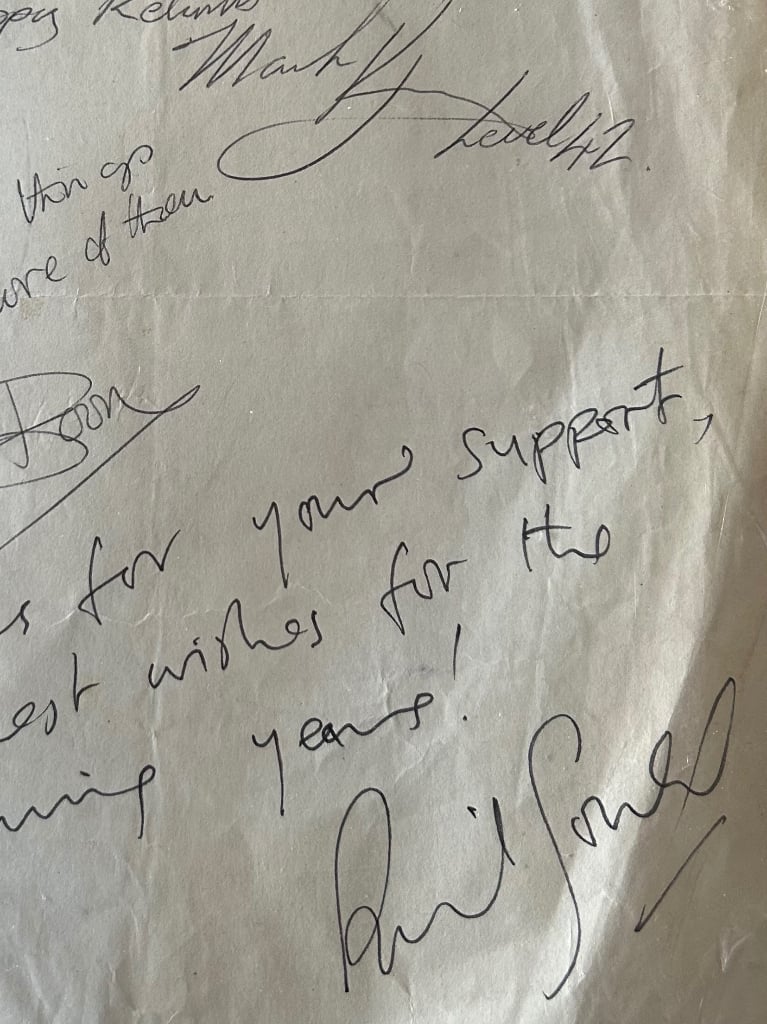 ppy Returns
Mark K
Level 42.
things
ore of them
Boon
s for your support,
est wishes for the
ming years!
Jones